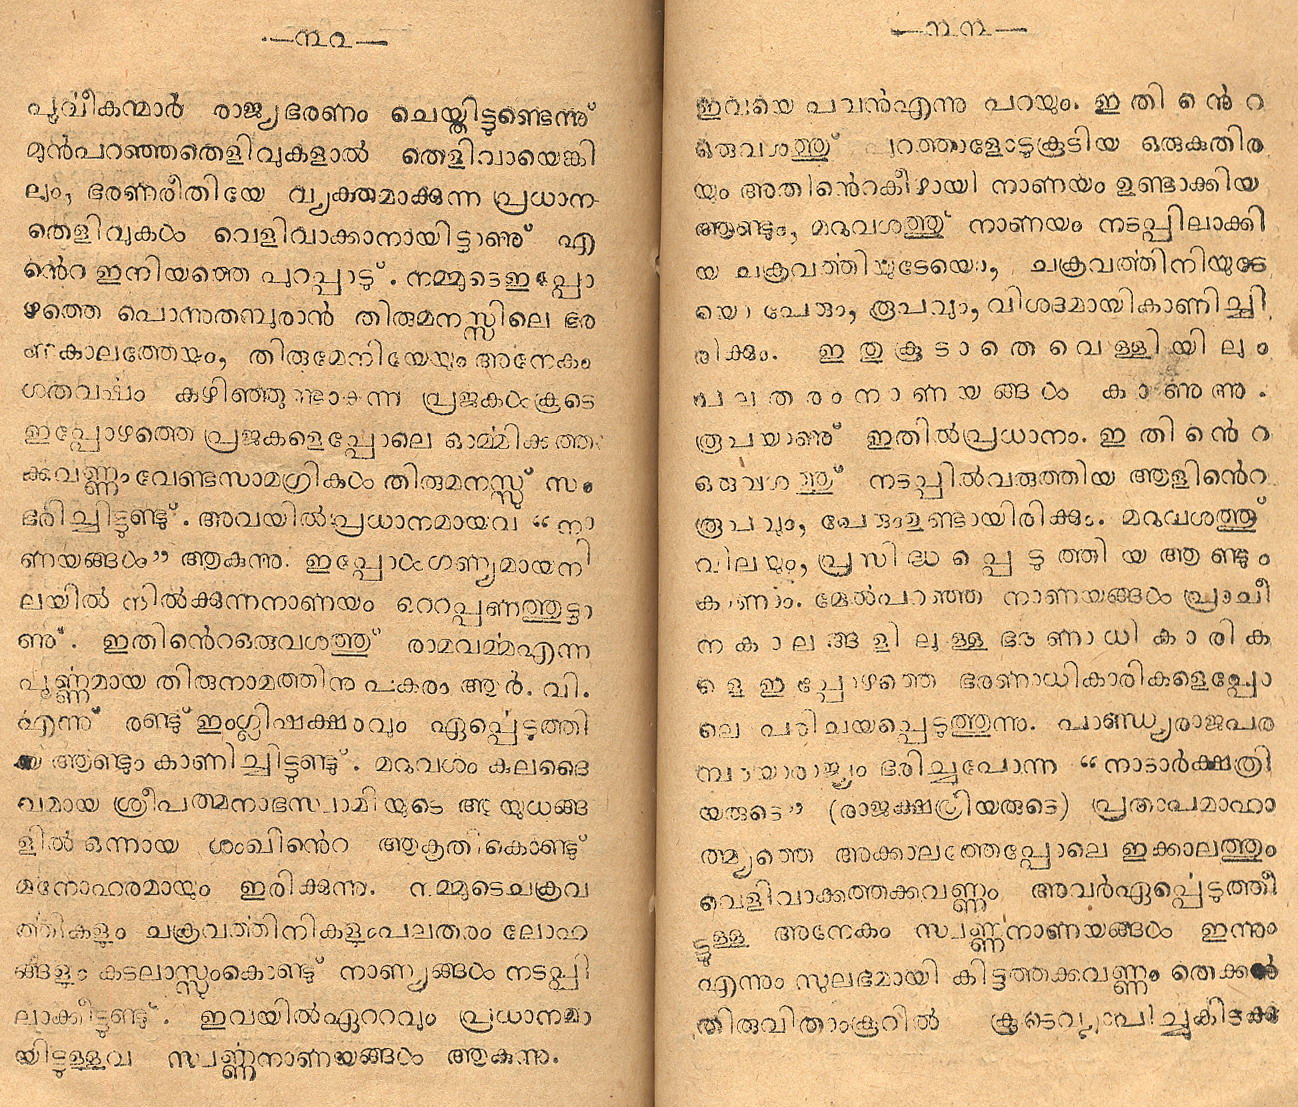 —൩൨—
പൂൎവീകന്മാർ രാജ്യഭരണം ചെയ്തിട്ടുണ്ടെന്നു്
മുൻപറഞ്ഞതെളിവുകളാൽ തെളിവായെങ്കി
ലും, ഭരണരീതിയേ വ്യക്തമാക്കുന്ന പ്രധാന
തെളിവുകൾ വെളിവാക്കാനായിട്ടാണു് എ
ൻെറ ഇനിയത്തെ പുറപ്പാടു്. നമ്മുടെഇപ്പോ
ഴത്തെ പൊന്നുതമ്പുരാൻ തിരുമനസ്സിലെ ഭര
ണകാലത്തേയും, തിരുമേനിയേയും അനേകം
ഗതവൎഷം കഴിഞ്ഞു പ്രജകൾകൂടെ
ഇപ്പോഴത്തെ പ്രജകളെപ്പോലെ ഓൎമ്മിക്കത്ത
ക്കവണ്ണം വേണ്ടസാമഗ്രികൾ തിരുമനസ്സു് സം
ഭരിച്ചിട്ടുണ്ടു്. അവയിൽപ്രധാനമായവ “നാ
ണയങ്ങൾ” ആകുന്നു. ഇപ്പോൾഗണ്യമായനി
ലയിൽ നിൽക്കുന്നനാണയം റെറപ്പണത്തുട്ടാ
ണു്. ഇതിൻെറഒരുവശത്തു് രാമവൎമ്മഎന്ന
പൂൎണ്ണമായ തിരുനാമത്തിനു പകരം ആർ. വി.
എന്നു് രണ്ടു് ഇംഗ്ലീഷക്ഷരവും ഏൎപ്പെടുത്തി
യ ആണ്ടും കാണിച്ചിട്ടുണ്ടു്. മറുവശം കുലദൈ
വമായ ശ്രീപത്മനാഭസ്വാമിയുടെ ആയുധങ്ങ
ളിൽ ഒന്നായ ശംഖിൻെറ ആകൃതികൊണ്ടു്
മനോഹരമായും ഇരിക്കുന്നു. നമ്മുടെചക്രവ
ൎത്തികളും ചക്രവൎത്തിനികളുംപലതരം ലോഹ
ങ്ങളും കടലാസ്സുംകൊണ്ടു് നാണ്യങ്ങൾ നടപ്പി
ലാക്കീട്ടുണ്ടു്. ഇവയിൽഏററവും പ്രധാനമാ
യിട്ടുള്ളവ സ്വൎണ്ണനാണയങ്ങൾ ആകുന്നു.
—൩൩—
ഇവയെ പവൻഎന്നു പറയും. ഇതിൻെറ
ഒരുവശത്തു് പുറത്താളോടുകൂടിയ ഒരുകുതിര
യും അതിൻെറകീഴായി നാണയം ഉണ്ടാക്കിയ
ആണ്ടും, മറുവശത്തു് നാണയം നടപ്പിലാക്കി
യ ചക്രവൎത്തിയുടേയൊ, ചക്രവൎത്തിനിയുടേ
യൊ പേരും, രൂപവും, വിശദമായികാണിച്ചി
രിക്കും. ഇതുകൂടാതെ വെള്ളിയിലും
പലതരംനാണയങ്ങൾ കാണുന്നു.
രൂപയാണു് ഇതിൽപ്രധാനം. ഇതിൻെറ
ഒരുവശത്തു് നടപ്പിൽവരുത്തിയ ആളിൻെറ
രൂപവും, പേരുംഉണ്ടായിരിക്കും. മറുവശത്തു്
വിലയും, പ്രസിദ്ധപ്പെടുത്തിയ ആണ്ടും
കാണാം. മേൽപറഞ്ഞ നാണയങ്ങൾ പ്രാചീ
നകാലങ്ങളിലുള്ള ഭരണാധികാരിക
ളെ ഇപ്പോഴത്തെ ഭരണാധികാരികളെപ്പോ
ലെ പരിചയപ്പെടുത്തുന്നു. പാണ്ഡ്യരാജപര
മ്പരയാരാജ്യം ഭരിച്ചുപോന്ന “നാടാർക്ഷത്രി
യരുടെ” (രാജക്ഷത്രിയരുടെ) പ്രതാപമാഹാ
ത്മ്യത്തെ അക്കാലത്തേപ്പോലെ ഇക്കാലത്തും
വെളിവാക്കത്തക്കവണ്ണം അവർഏൎപ്പെടുത്തീ
ട്ടുള്ള അനേകം സ്വൎണ്ണനാണയങ്ങൾ ഇന്നും
എന്നും സുലഭമായി കിട്ടത്തക്കവണ്ണം തെക്കൻ
തിരുവിതാംകൂറിൽ കൂടെവ്യാപിച്ചുകിടക്ക